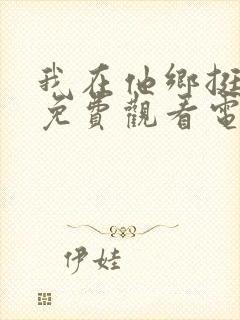 我在他鄉挺
免費觀看電
伊娃